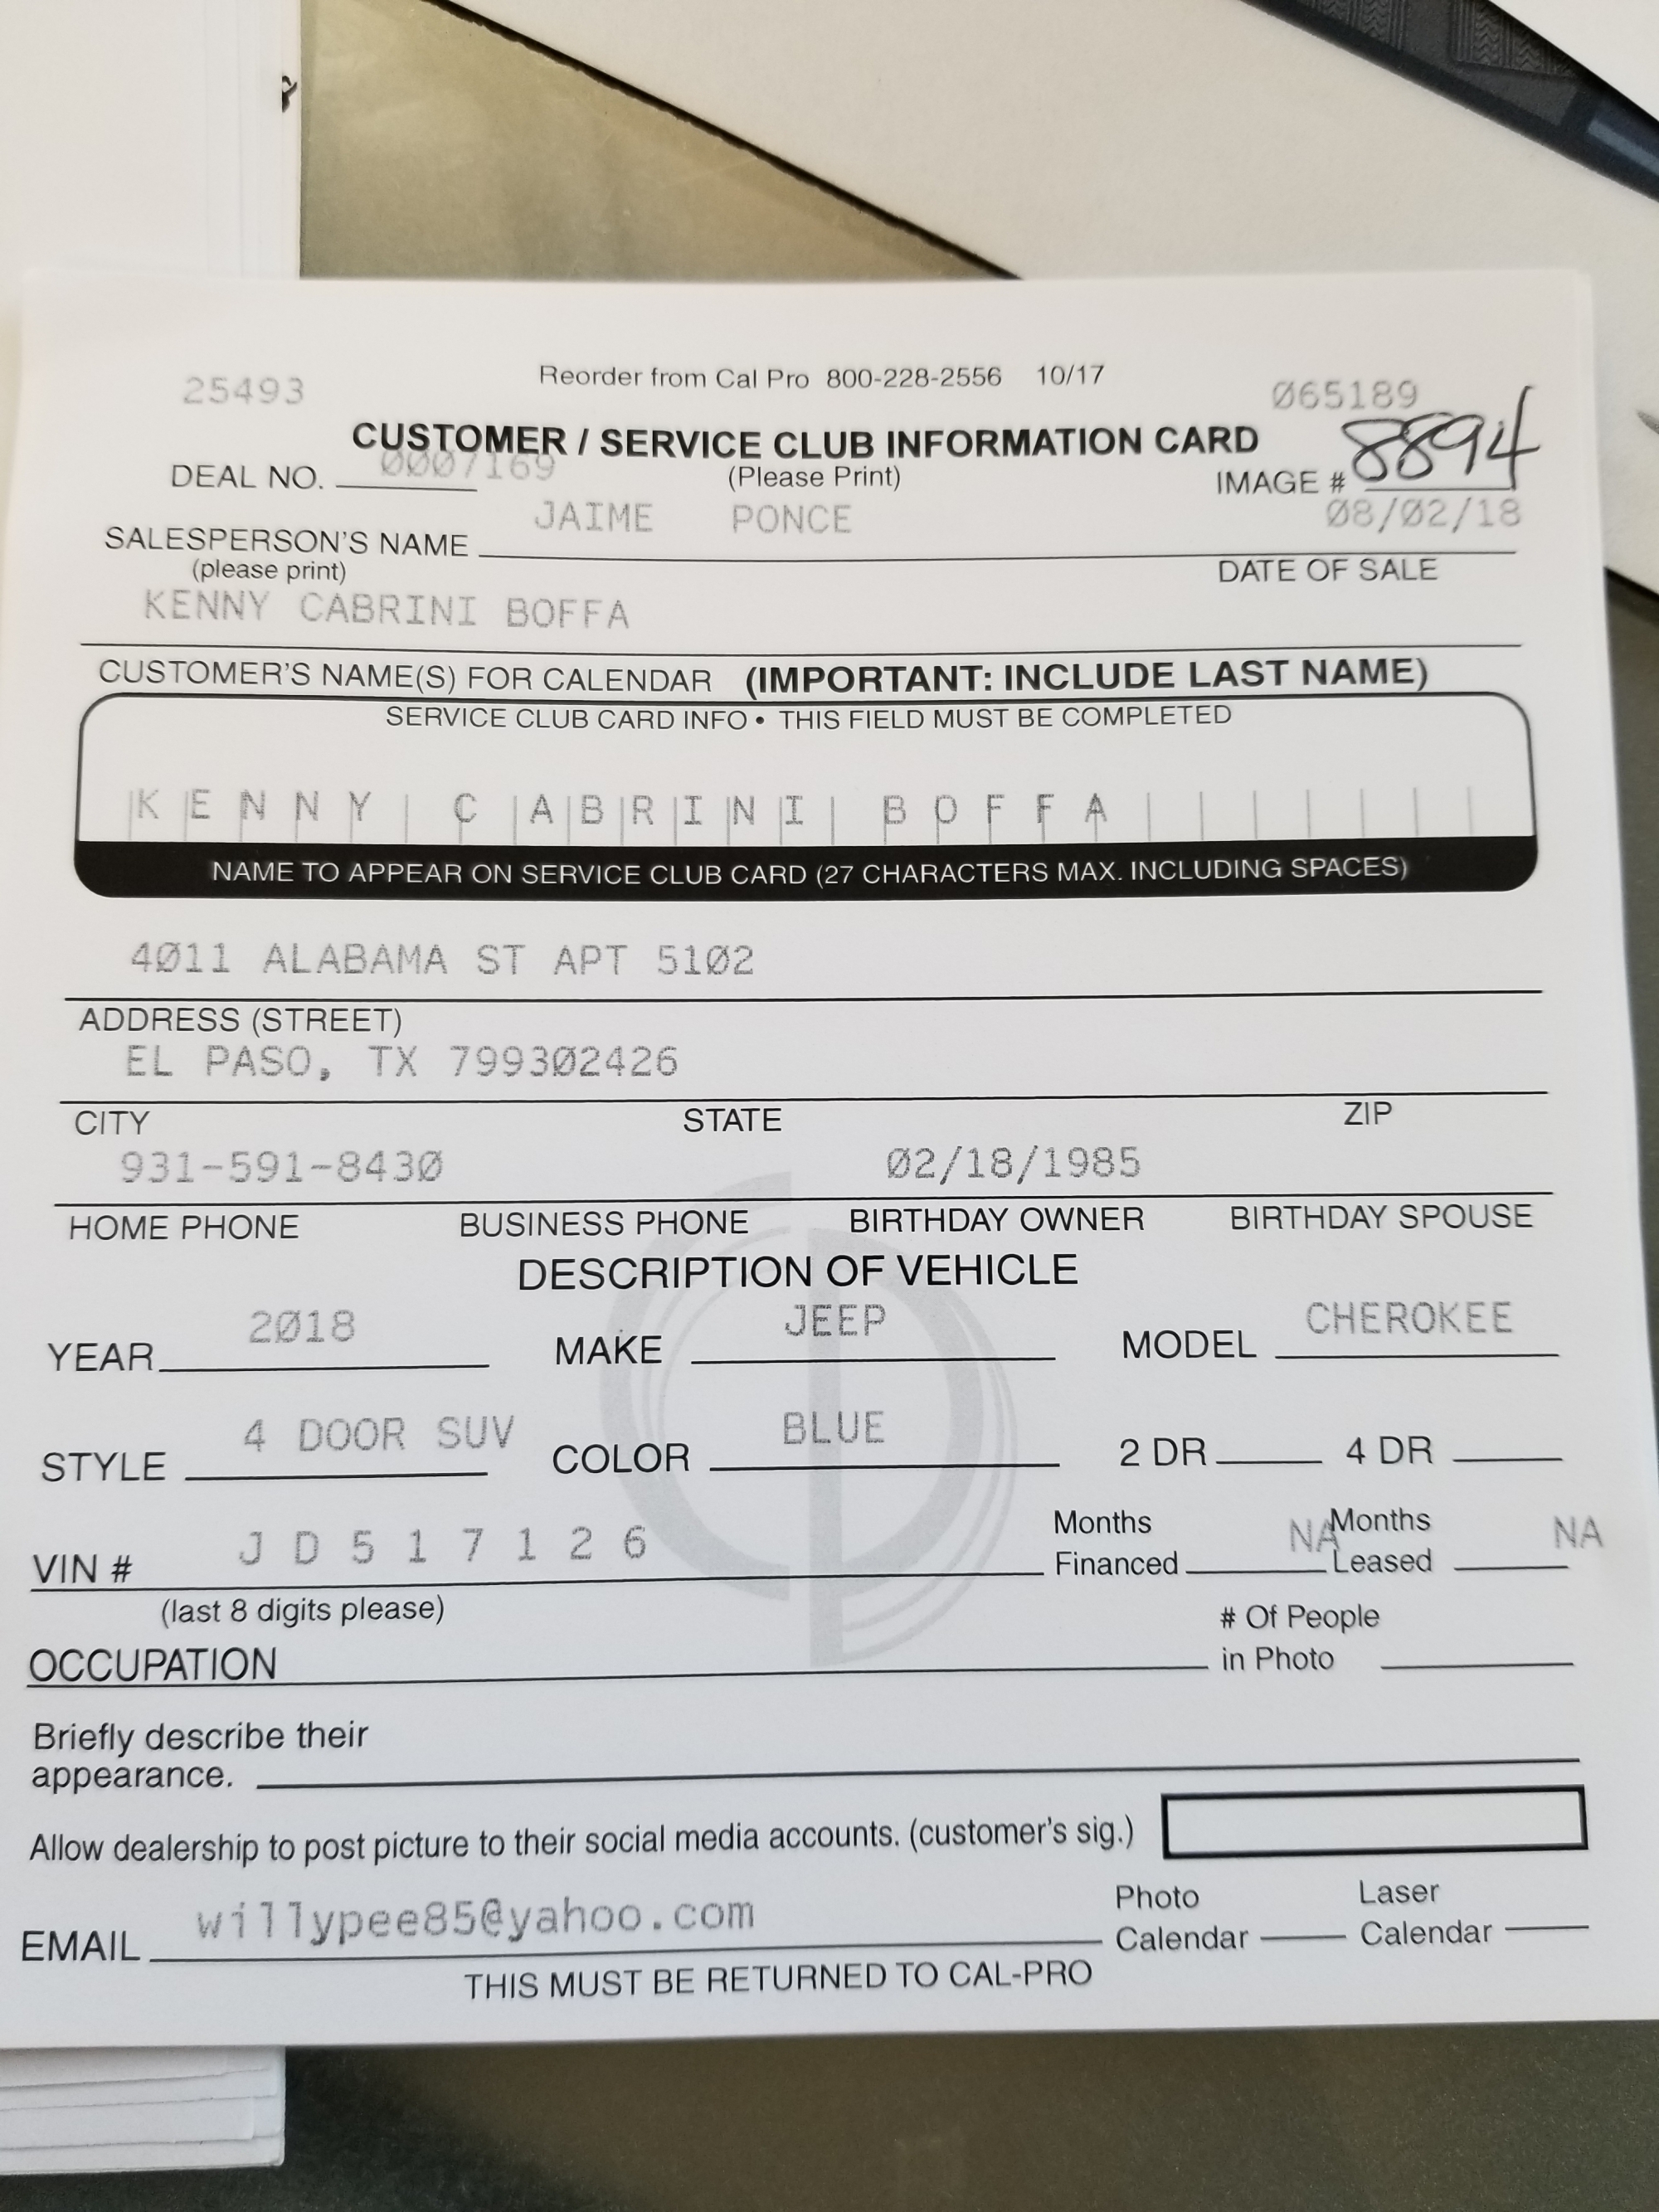 25493 Reorder from Cal Pro 800-228-2556 10/17 065189
CUSTOMER / SERVICE CLUB INFORMATION CARD
DEAL NO. 0007169 (Please Print) IMAGE # 8894
JAIME PONCE 08/02/18
SALESPERSON'S NAME
(please print) DATE OF SALE
KENNY CABRINI BOFFA
CUSTOMER'S NAME(S) FOR CALENDAR (IMPORTANT: INCLUDE LAST NAME)
SERVICE CLUB CARD INFO • THIS FIELD MUST BE COMPLETED
KENNY CABRINI BOFFA
NAME TO APPEAR ON SERVICE CLUB CARD (27 CHARACTERS MAX. INCLUDING SPACES)
4011 ALABAMA ST APT 5102
ADDRESS (STREET)
EL PASO, TX 799302426
CITY STATE ZIP
931-591-8430 02/18/1985
HOME PHONE BUSINESS PHONE BIRTHDAY OWNER BIRTHDAY SPOUSE
DESCRIPTION OF VEHICLE
YEAR 2018 MAKE JEEP MODEL CHEROKEE
STYLE 4 DOOR SUV COLOR BLUE 2 DR 4 DR
VIN # J D 5 1 7 1 2 6 Months Financed NA Months Leased NA
(last 8 digits please)
OCCUPATION # Of People in Photo
Briefly describe their
appearance.
Allow dealership to post picture to their social media accounts. (customer's sig.)
EMAIL willypee85@yahoo.com Photo Calendar Laser Calendar
THIS MUST BE RETURNED TO CAL-PRO